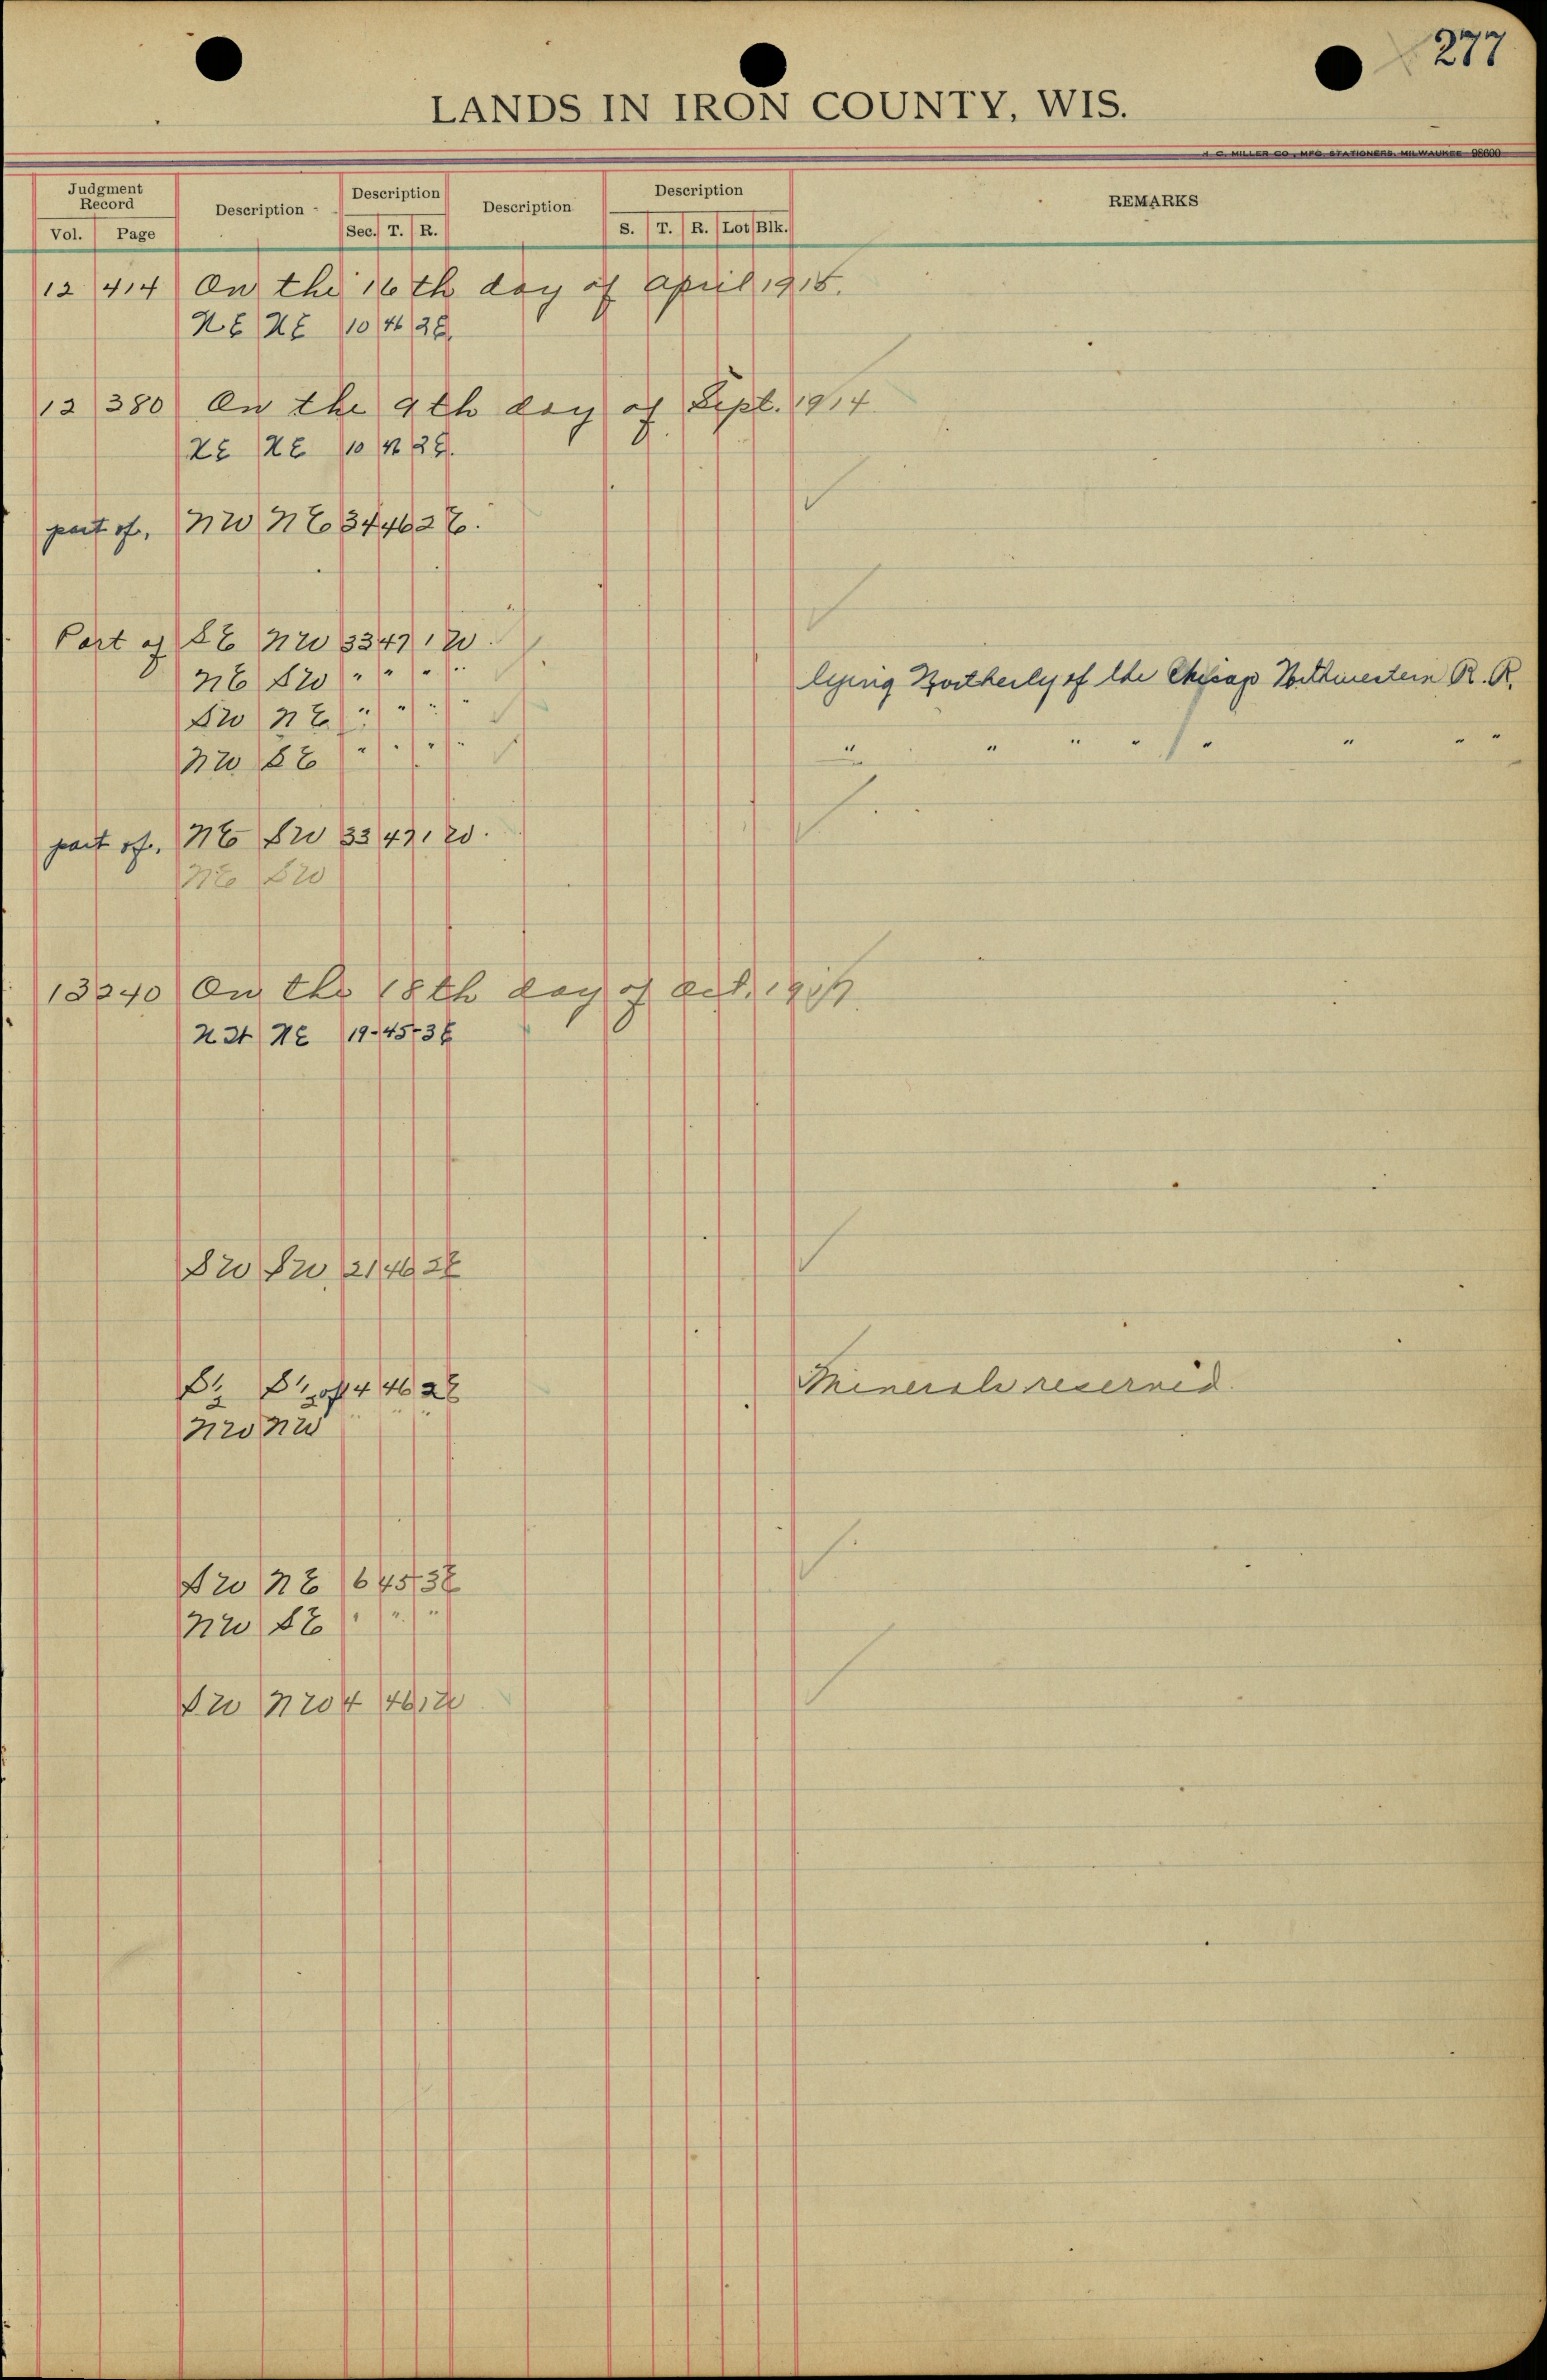 277
LANDS IN IRON COUNTY, WIS.
H. C. MILLER CO., MFG. STATIONERS, MILWAUKEE 98600
Judgment Record Description Description Description Description REMARKS
Vol. Page Sec. T. R. S. T. R. Lot Blk.
12 414 On the 16th day of April 1915.
NE NE 10 46 2E.
12 380 On the 9th day of Sept. 1914
NE NE 10 46 2E.
part of, NW NE 34 46 2E.
Part of SE NW 33 47 1W.
NE SW " " " " lying Northerly of the Chicago Northwestern R. R.
SW NE " " " "
NW SE " " " " " " " " " " " "
part of, NE SW 33 47 1W.
NE SW
13 240 On the 18th day of Oct.
NW NE 19-45-3E
SW SW 21 46 2E
S½ S½ of 4 46 2E Minerals reserved.
NW NW " " "
SW NE 6 45 3E
NW SE " " "
SW NW 4 46 1W